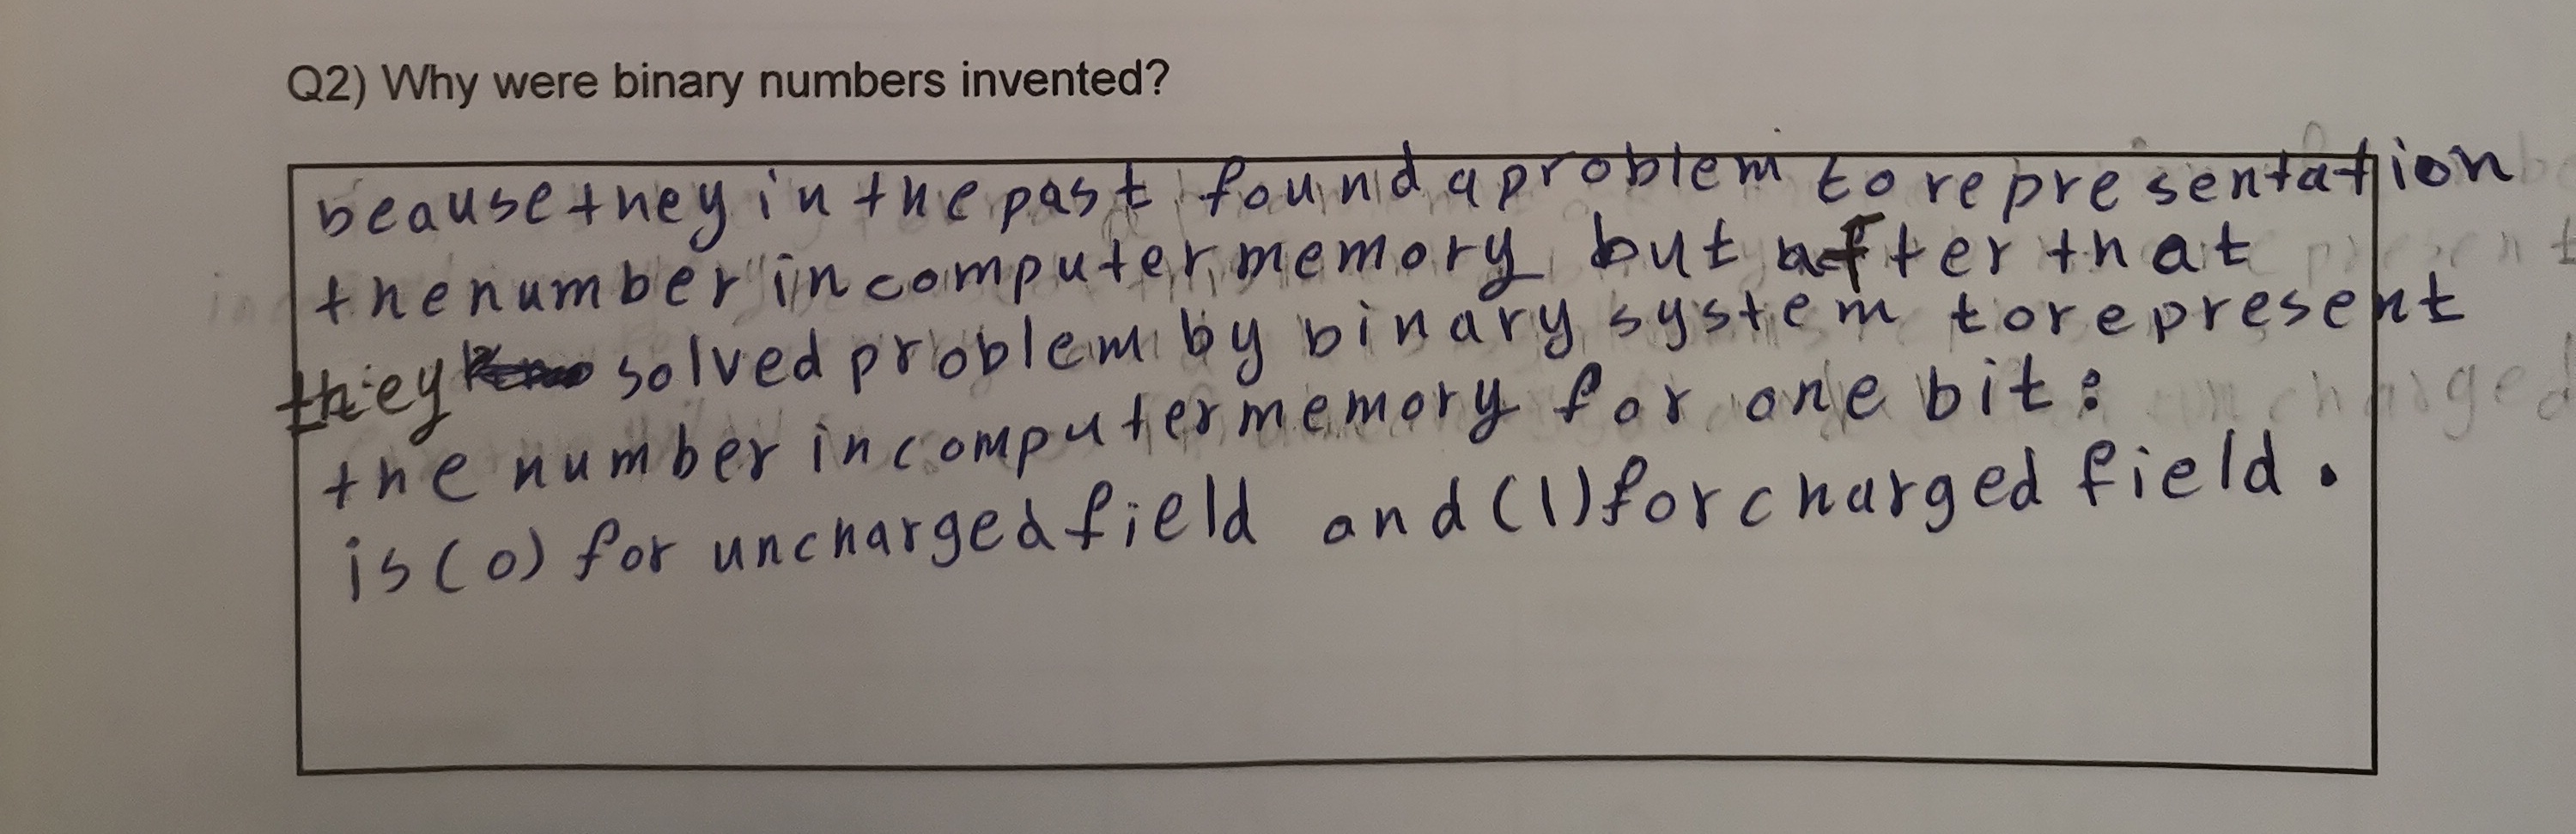 Q2) Why were binary numbers invented?
beause they in the past found a problem to representation
the number in computer memory but after that
they solved problem by binary system to represent
the number in computer memory for one bit:
is (0) for uncharged field and (1) for charged field.